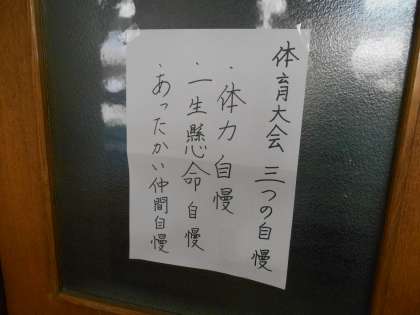 体育大会 三つの自慢
・体力自慢
・一生懸命自慢
・あったかい仲間自慢